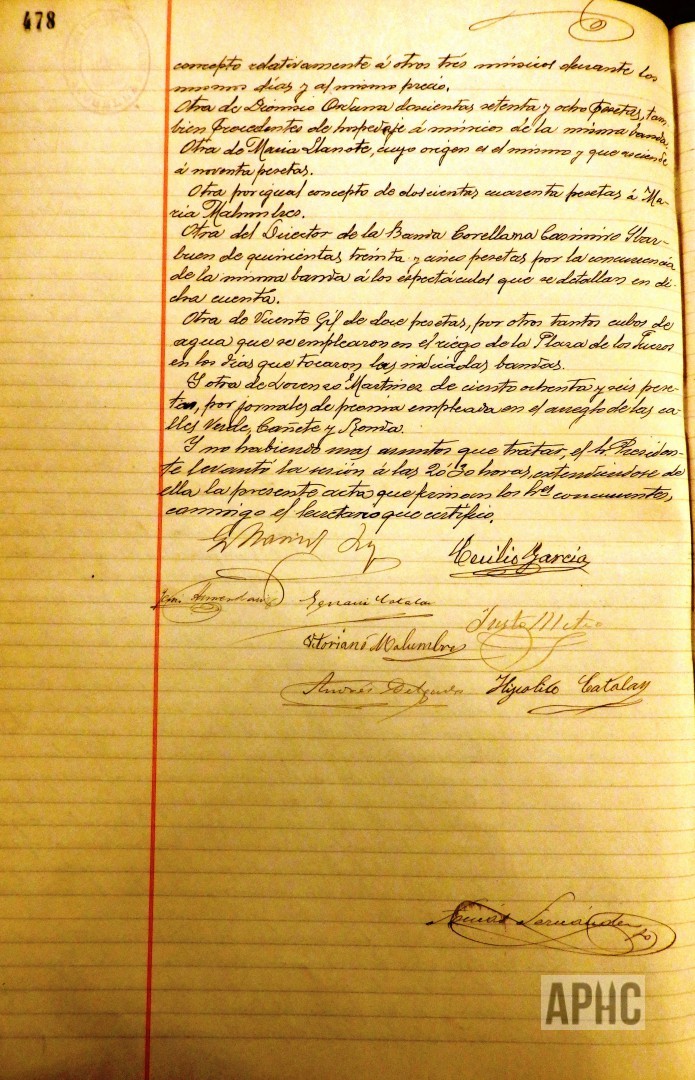 478
concepto relativamente á otros tres músicos durante los
mismos días y al mismo precio.
Otra de Dionisio Orduna doscientas setenta y ocho pesetas, tam-
bien procedentes de hospedaje á músicos de la misma banda.
Otra de Maria Llanote, cuyo origen es el mismo y que asciende
á noventa pesetas.
Otra por igual concepto de doscientas cuarenta pesetas á Ma-
ria Malumbres.
Otra del Director de la Banda Corellana Casimiro Ybar-
buen de quinientas treinta y cinco pesetas por la concurrencia
de la misma banda á los espectáculos que se detallan en di-
cha cuenta.
Otra de Vicente Gil de doce pesetas, por otros tantos cubos de
agua que se emplearon en el riego de la Plaza de los Fueros
en los dias que tocaron las indicadas bandas.
Y otra de Lorenzo Martinez de ciento ochenta y seis pese-
tas, por jornales de peonía empleada en el arreglo de las ca-
lles Verde, Cañete y Ronda.
Y no habiendo mas asuntos que tratar, el Sr. Presiden-
te levantó la sesión á las 20'30 horas, extendiendose de
ella la presente acta que firman los Sres concurrentes,
conmigo el Secretario que certifico.
Cecilio Garcia
Genaro Catalan
Justo
Vitoriano Malumbres
Andrés Delgado Hipolito Catalan
Fernández
APHC